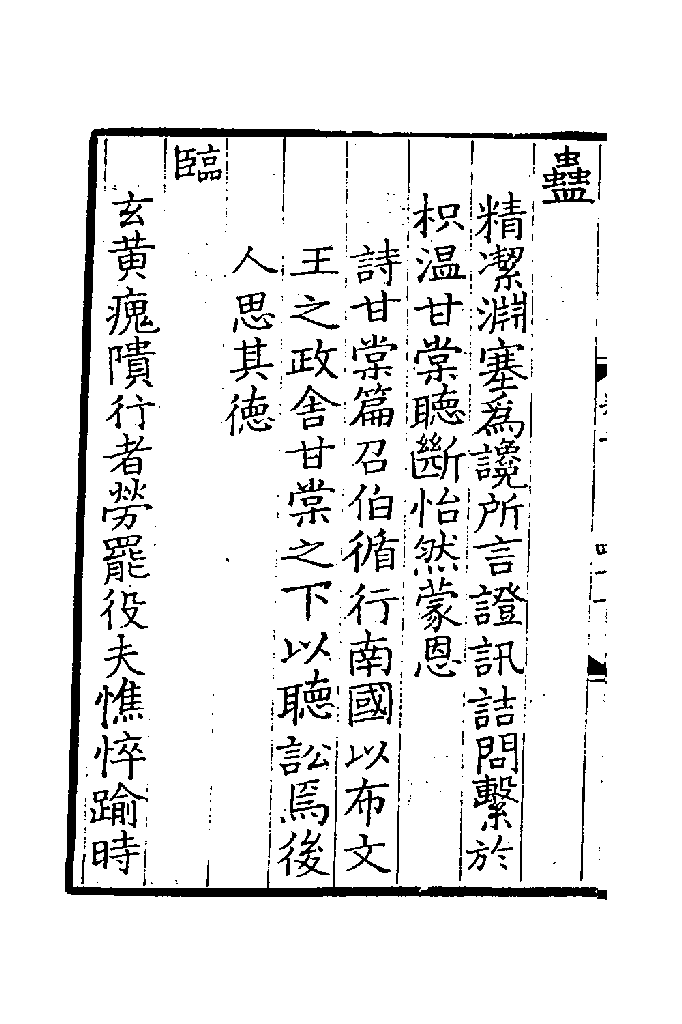 蠱
精潔淵塞爲讒所言證訊詰問繫於
枳温甘棠聽斷怡然蒙恩
詩甘棠篇召伯循行南國以布文
王之政舍甘棠之下以聽訟焉後
人思其徳
臨
玄黄瘣隤行者勞罷役夫憔悴踰時